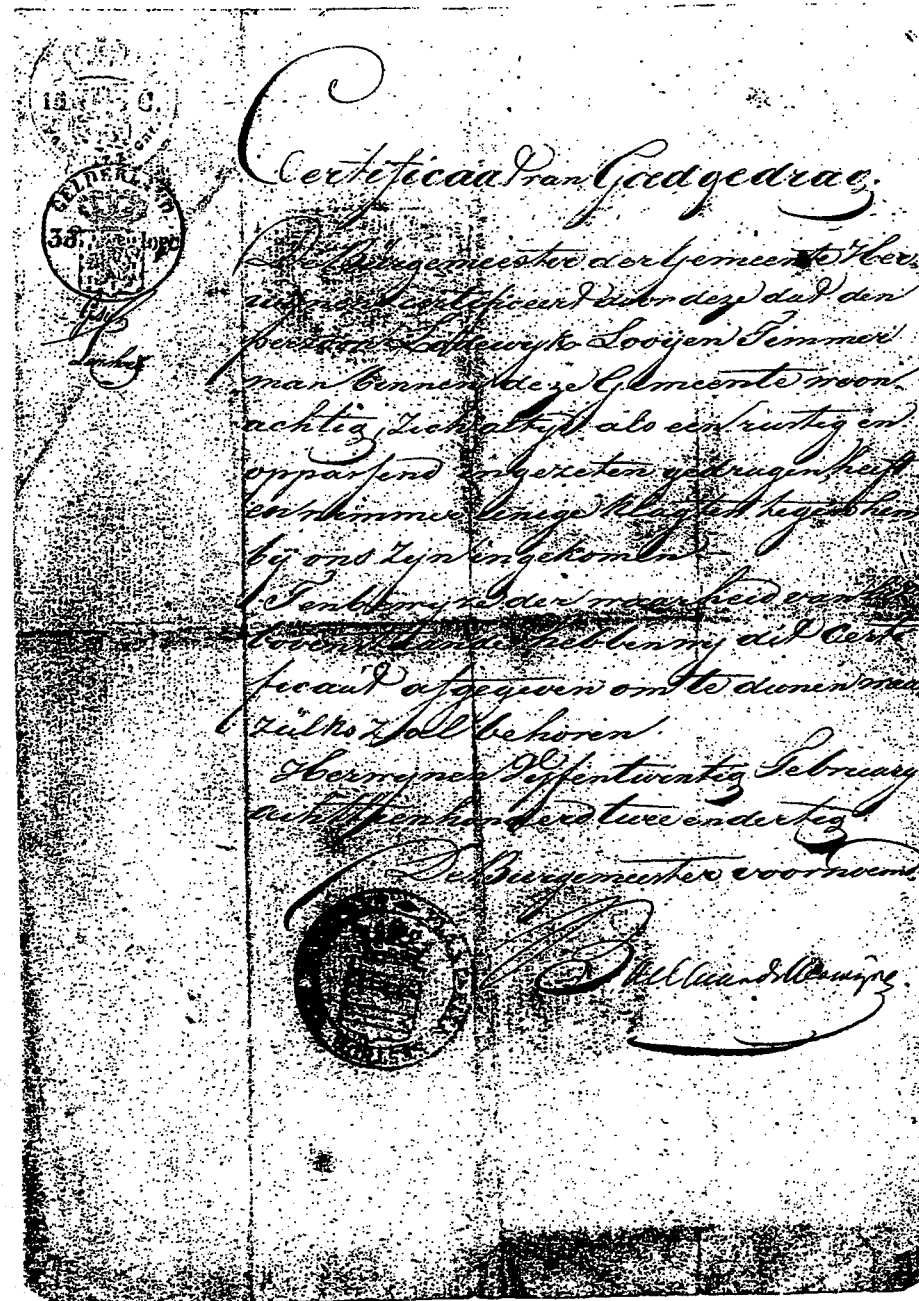 15 C.
GELDERLAND
38 opc
Certificaat van Goed gedrag.
De Burgemeester der Gemeente Her
wijnen certificeerd door deze dat den
persoon Lodewijk Looijen Timmer
man binnen deze Gemeente woon
achtig, zich altijd als een rustig en
oppassend ingezeten gedragen heeft
en nimmer eenige klagten tegen hem
bij ons zijn ingekomen
Ten bewijze der waarheid van het
bovenstaande hebben wij dit Certi
ficaat afgegeven om te dienen waar
zulks zal behoren.
Herwynen Vyfentwintig February
achttienhonderd twee en dertig
De Burgemeester voornoemd